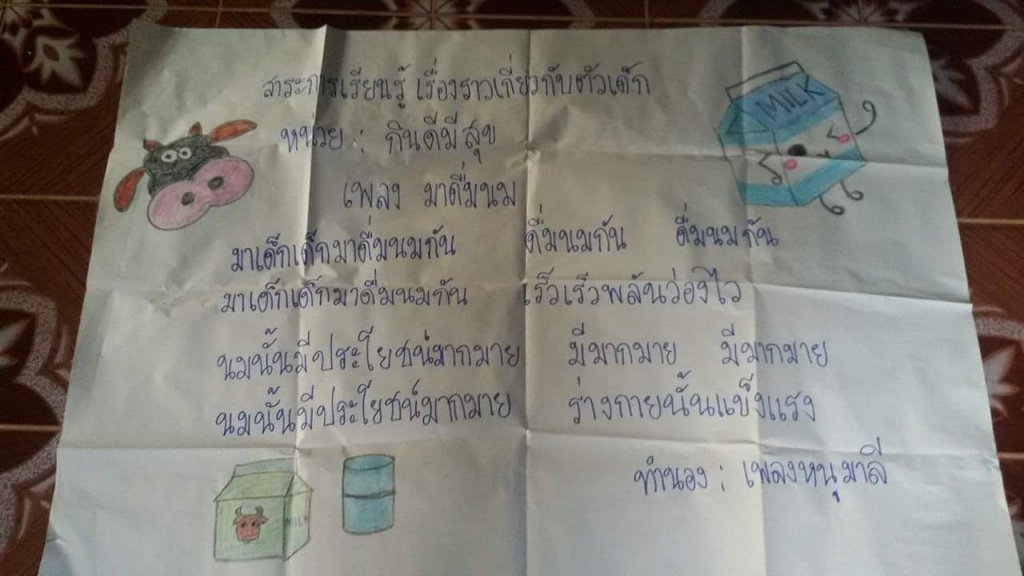 สาระการเรียนรู้ เรื่องราวเกี่ยวกับตัวเด็ก
หน่วย : กินดีมีสุข
เพลง มาดื่มนม
มาเด็กเด็กมาดื่มนมกัน ดื่มนมกัน ดื่มนมกัน
มาเด็กเด็กมาดื่มนมกัน เร็วเร็วพลันว่องไว
นมนั้นมีประโยชน์มากมาย มีมากมาย มีมากมาย
นมนั้นมีประโยชน์มากมาย ร่างกายนั้นแข็งแรง
ทำนอง : เพลงหนูมาลี
MILK
MILK